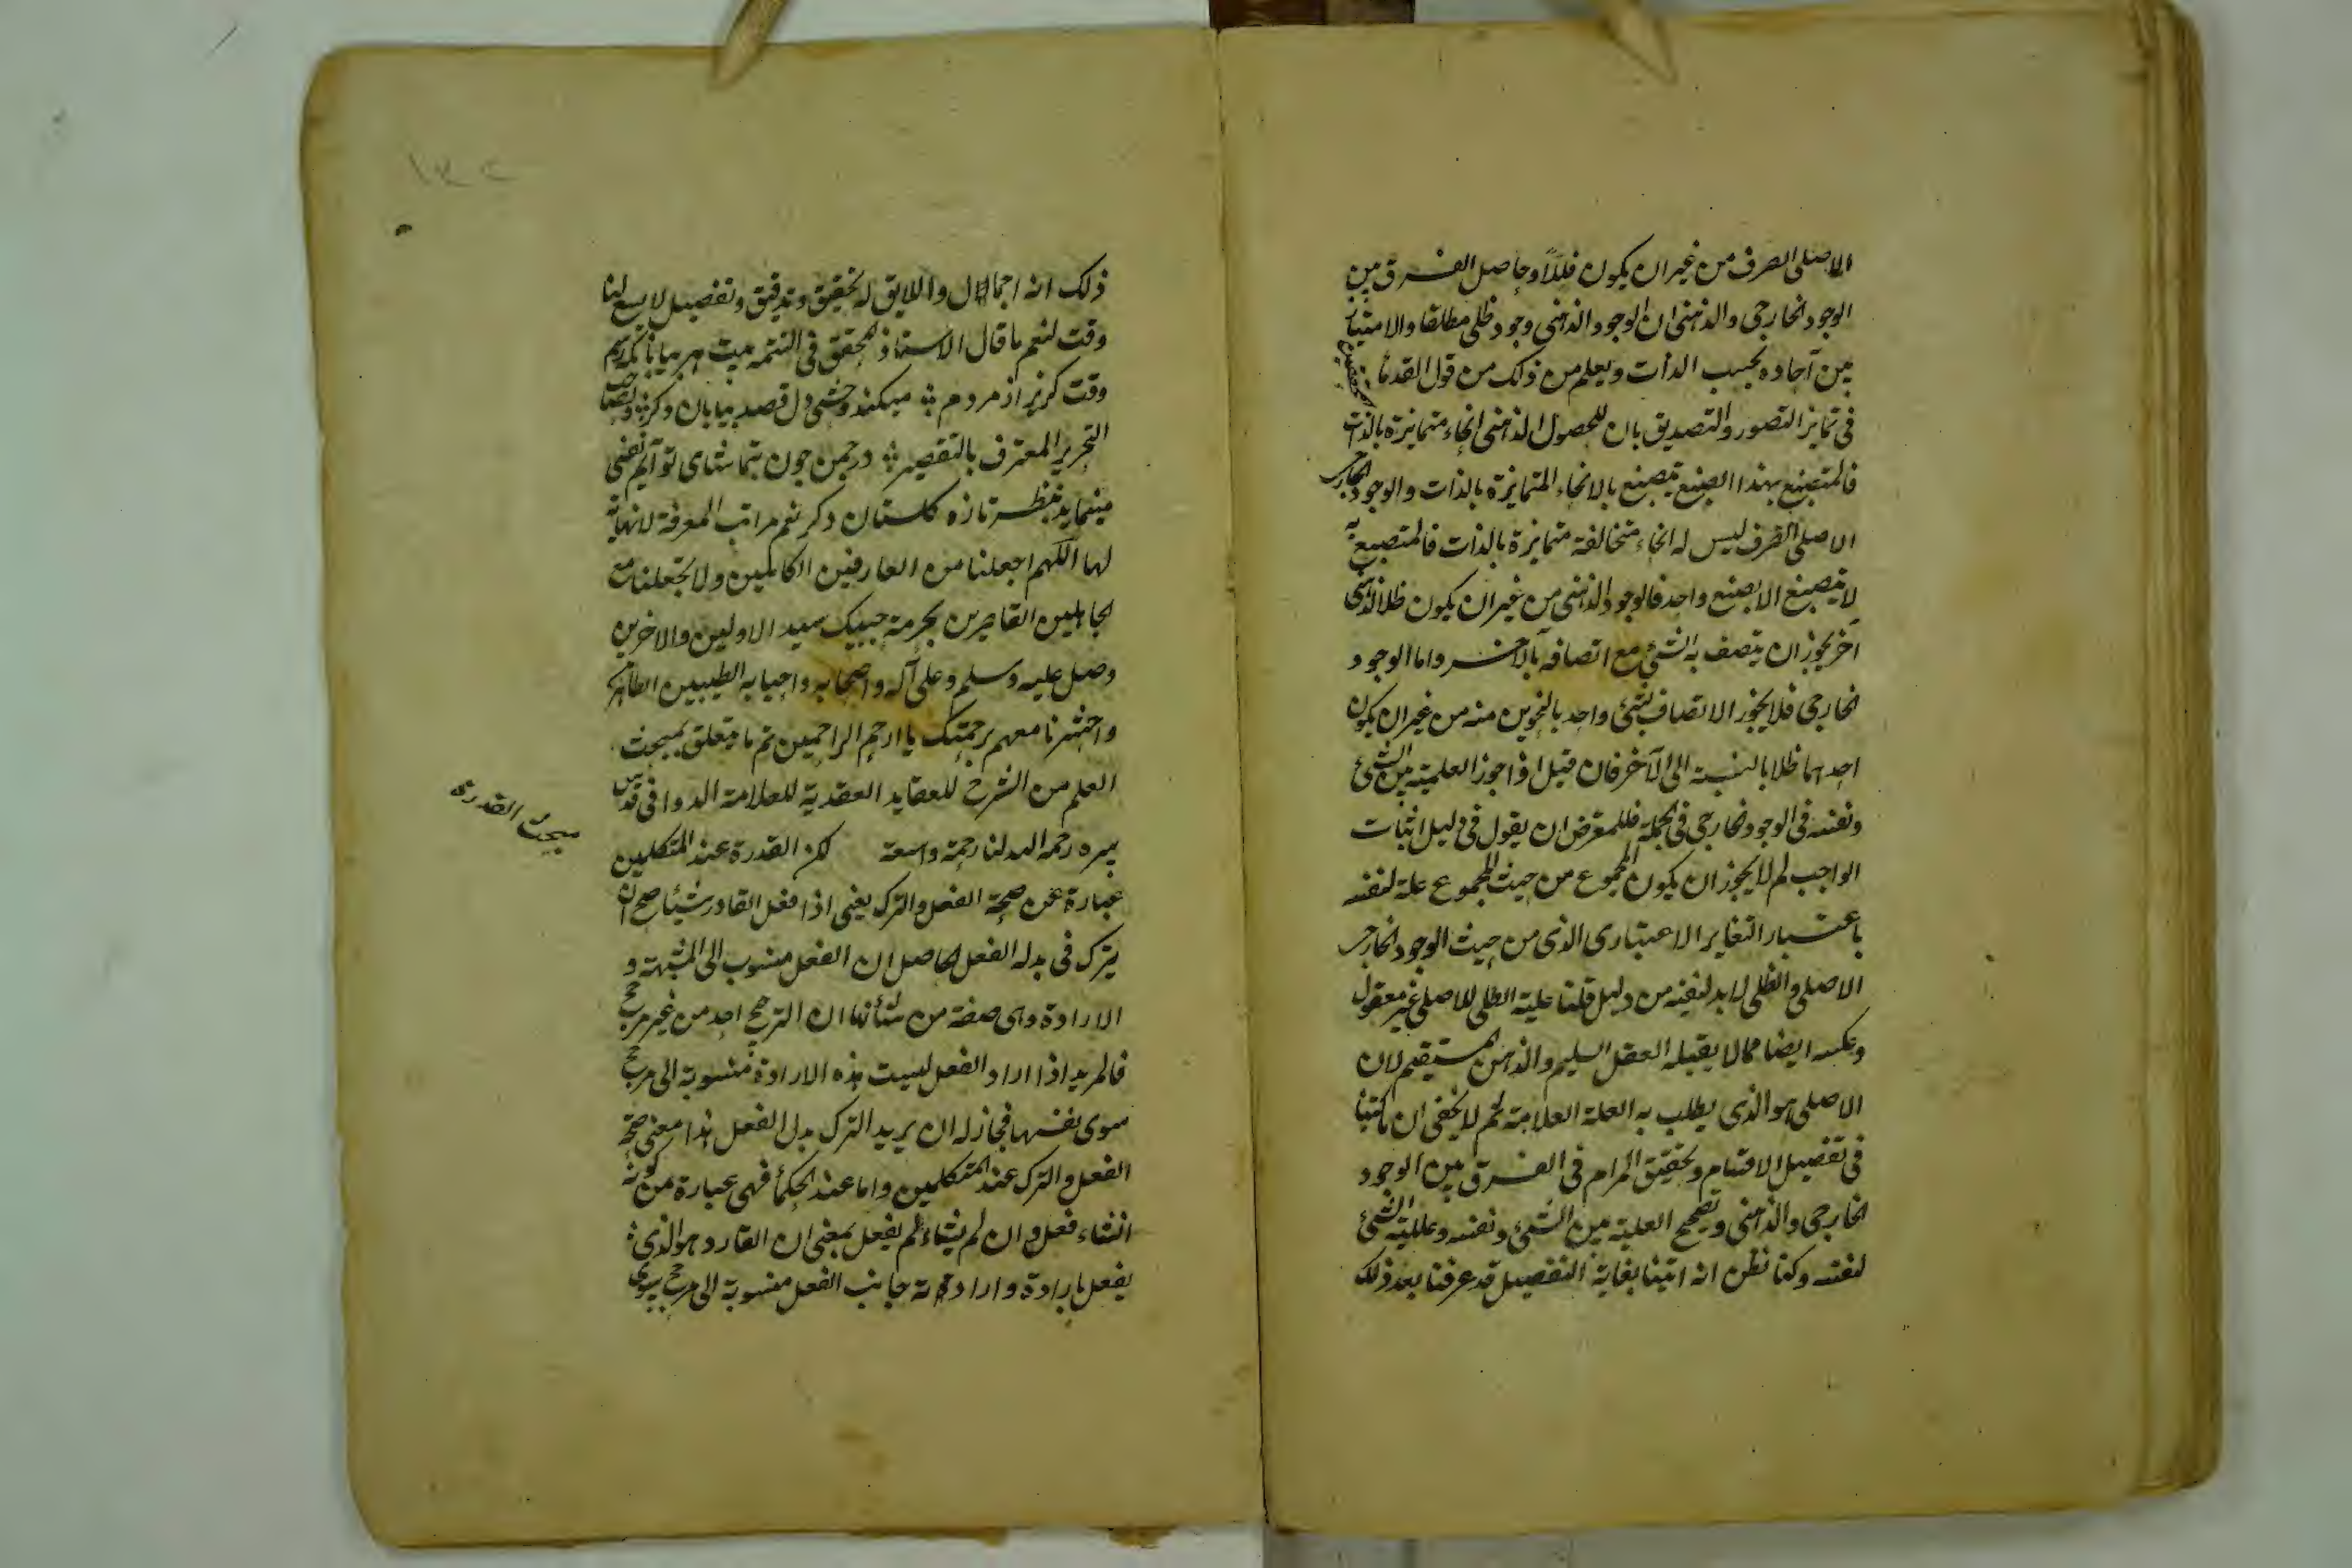 الاصلى الصرف من غير ان يكون ظلا وحاصل الفرق بين
الوجود الخارجى والذهنى ان الوجود الذهنى وجود ظلى مطلقا والامتياز
بين آحاده بحسب الذات ويعلم من ذلك من قول القدماء
فى تمايز التصور والتصديق بان للحصول الذهنى انحاء متمايزة بالذات
فالمتصبغ بهذا الصبغ يتصبغ بالانحاء المتمايزة بالذات والوجود الخارجى
الاصلى الصرف ليس له انحاء متخالفة متمايزة بالذات فالمتصبغ به
لا يتصبغ الا بصبغ واحد فالوجود الذهنى من غير ان يكون ظلا لذهنى
آخر يجوز ان يتصف به الشئ مع اتصافه بالآخر واما الوجود
الخارجى فلا يجوز الاتصاف لشئ واحد بالنحوين منه من غير ان يكون
احدهما ظلا بالنسبة الى الآخر فان قيل اذا جوز العلية بين الشئ
ونفسه فى الوجود الخارجى فى الجملة فللمعترض ان يقول فى دليل اثبات
الواجب لم لا يجوز ان يكون المجموع من حيث المجموع علة لنفسه
باعتبار التغاير الاعتبارى الذى من حيث الوجود الخارجى
الاصلى والظلى لا بد لنفيه من دليل قلنا علية الظلى للاصلى غير معقول
وعكسه ايضا مما لا يقبله العقل السليم والذهن المستقيم لان
الاصلى هو الذى يطلب به العلة العلامة ثم لا يخفى ان ما كتبنا
فى تفصيل الاقسام وتحقيق المرام فى الفرق بين الوجود
الخارجى والذهنى وتصحيح العلية بين الشئ ونفسه وعلية الشئ
لنفسه وكنا نظن انه اتينا بغاية التفصيل قد عرفنا بعد ذلك
ذلك انه اجمال واللايق له تحقيق وتدقيق وتفصيل لا يسع لنا
وقت لنعم ما قال الاستاذ المحقق فى التتمه بيت
وقت كريز از مردم ميكند وحشى دل قصد بيابان دكر
النحرير المعترف بالتقصير در چمن چون بتماشاى تو آيم نفسى
مينمايد بنظر تازه كلستان دكر نعم مراتب المعرفة لا نهاية
لها اللهم اجعلنا من العارفين الكاملين ولا تجعلنا مع
الجاهلين القاصرين بحرمة حبيبك سيد الاولين والاخرين
وصل عليه وسلم وعلى آله واصحابه واحبابه الطيبين الطاهرين
واحشرنا معهم برحمتك يا ارحم الراحمين تم ما يتعلق بمبحث
العلم من الشرح للعقايد العضدية للعلامة الدوانى قدس
سره رحمه الله لنا رحمة واسعة لكن القدرة عند المتكلمين
عبارة عن صحة الفعل والترك يعنى اذا فعل القادر شيئا صح ان
يترك فى بدله الفعل الحاصل ان الفعل منسوب الى المشية و
الارادة وهى صفة من شأنها ان الترجيح احد من غير مرجح
فالمريد اذا اراد الفعل ليست هذه الارادة منسوبة الى مرجح
سوى نفسها فجاز له ان يريد الترك بدل الفعل هذا معنى صحة
الفعل والترك عند المتكلمين واما عند الحكماء فهى عبارة من كونه
انشاء فعل وان لم يشاء لم يفعل بمعنى ان القادر هو الذى
يفعل بارادة وارادته جانب الفعل منسوبة الى مرجح سوى
مبحث القدرة